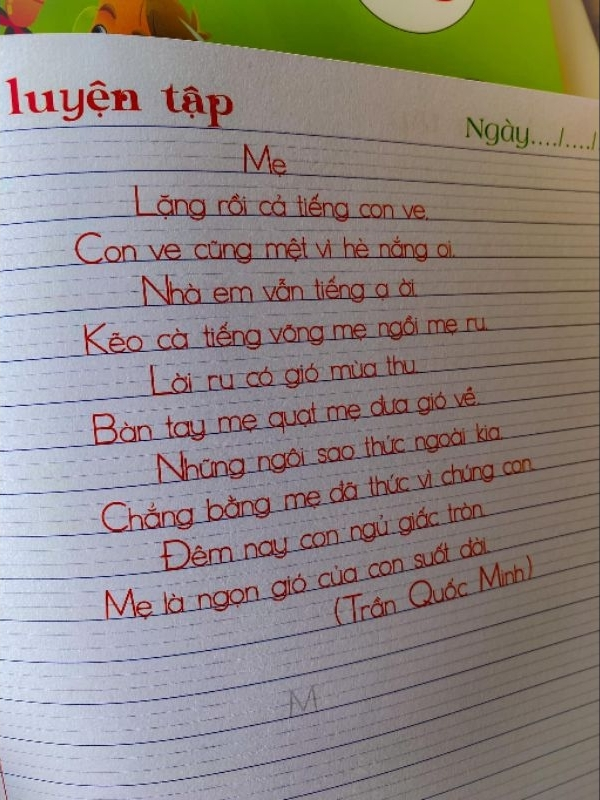 luyện tập
Ngày..../..../
Mẹ
Lặng rồi cả tiếng con ve.
Con ve cũng mệt vì hè nắng oi.
Nhà em vẫn tiếng ạ ời.
Kẽo cà tiếng võng mẹ ngồi mẹ ru.
Lời ru có gió mùa thu.
Bàn tay mẹ quạt mẹ đưa gió về.
Những ngôi sao thức ngoài kia.
Chẳng bằng mẹ đã thức vì chúng con.
Đêm nay con ngủ giấc tròn.
Mẹ là ngọn gió của con suốt đời.
(Trần Quốc Minh)
M